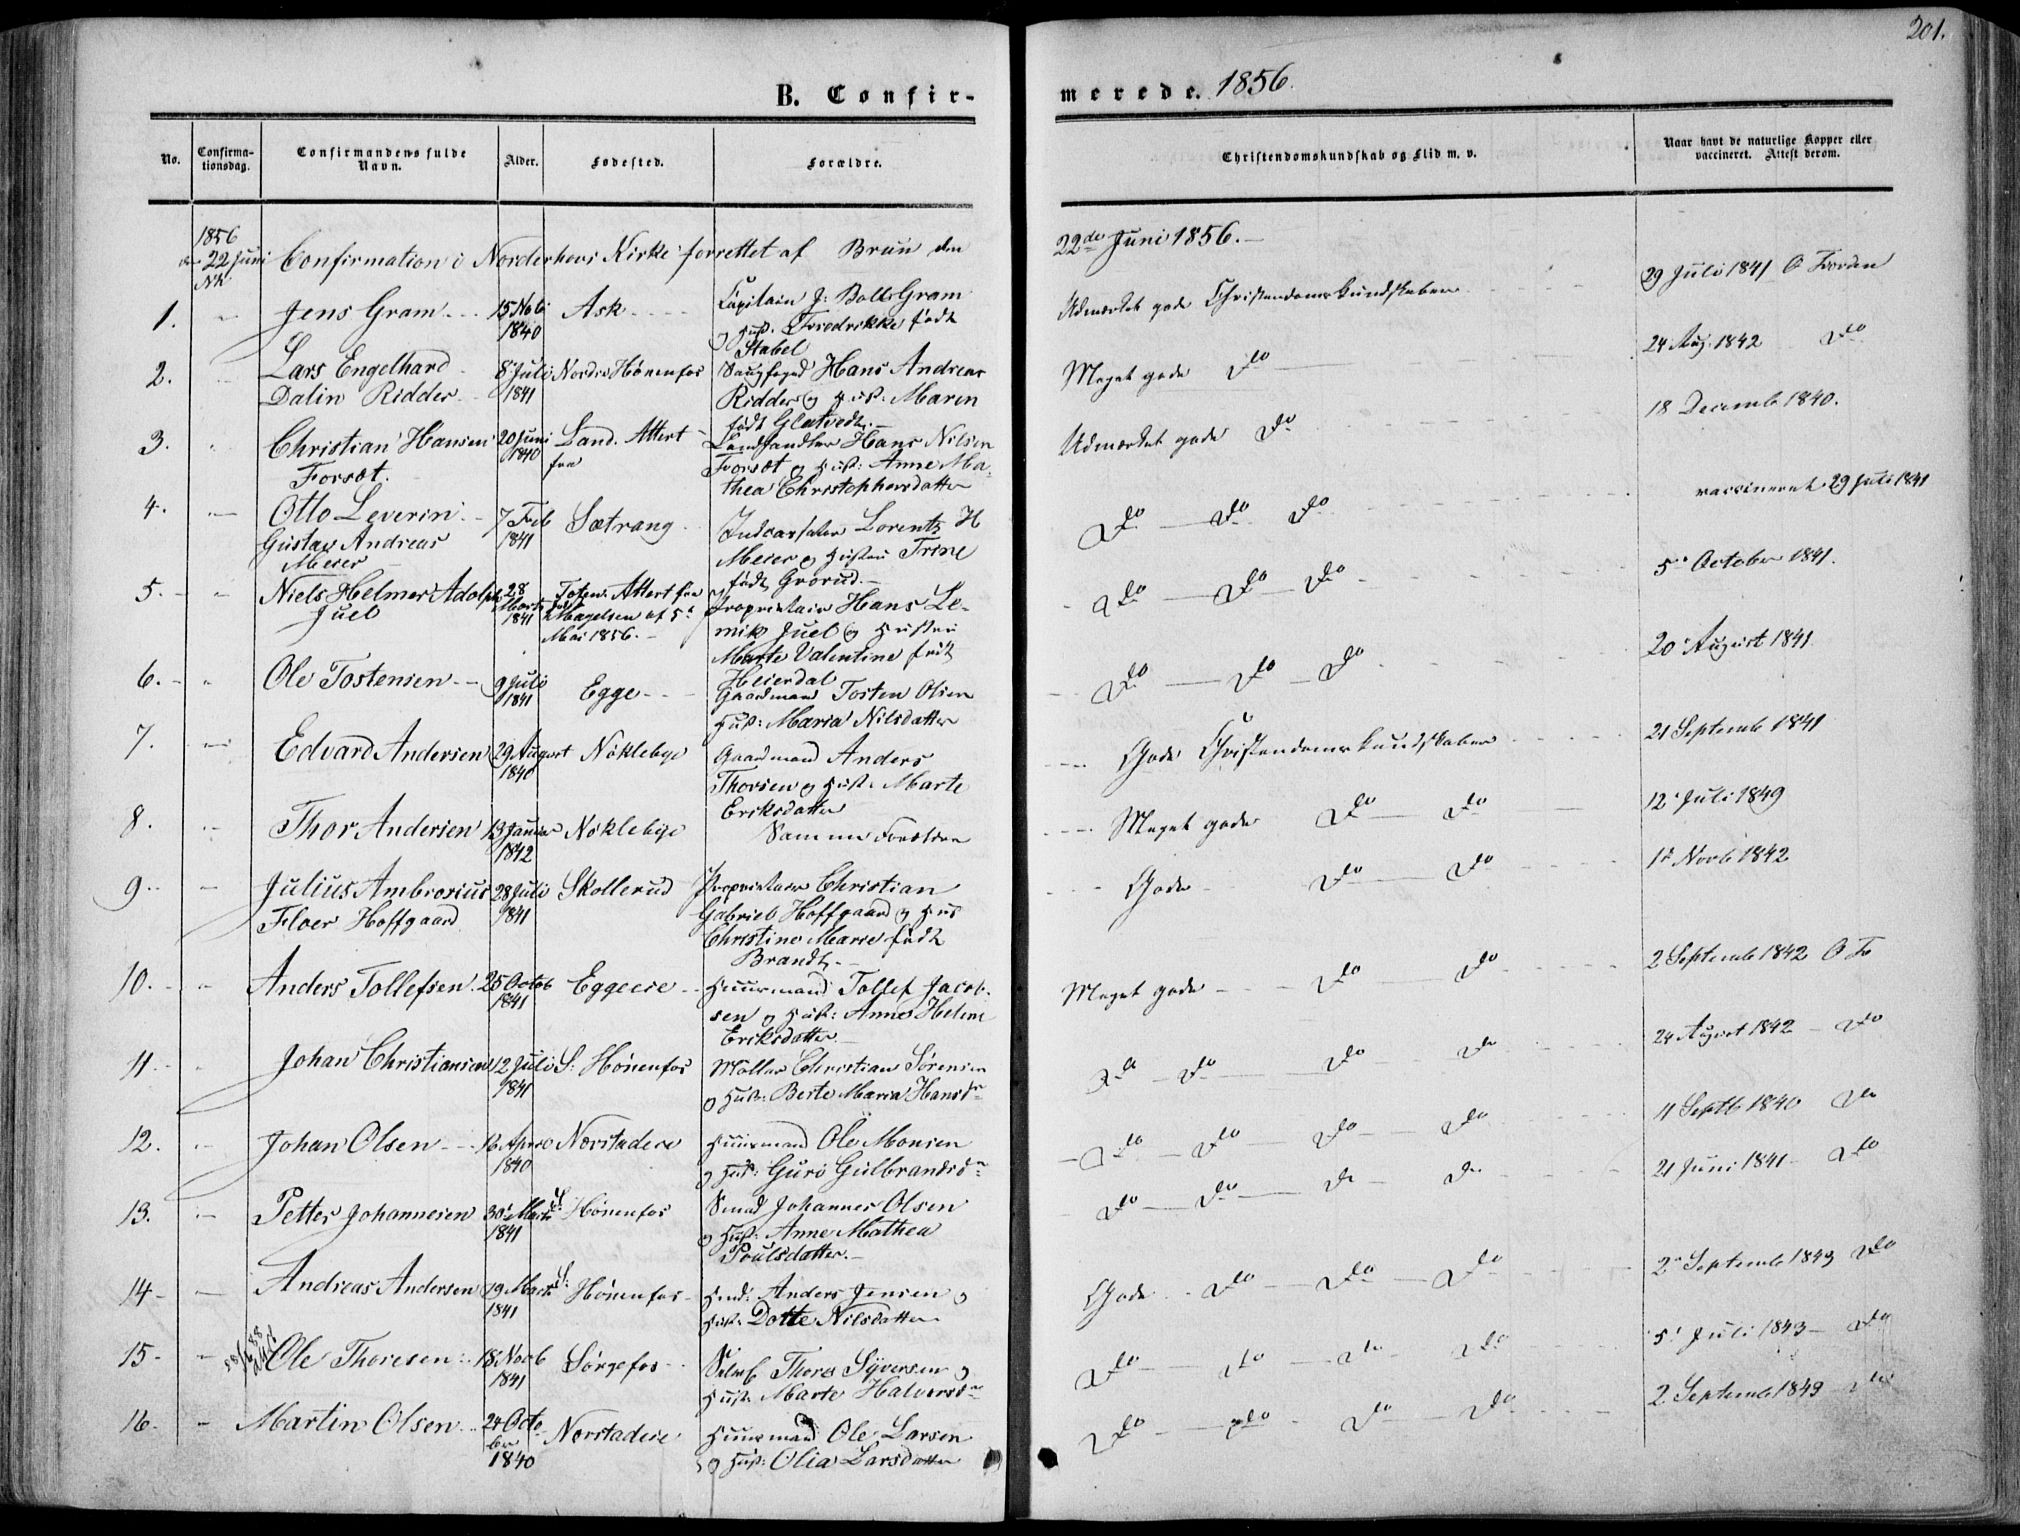 201.
B. Confir-
merede. 1856.
No.
Confirma-
tionsdag.
Confirmandens fulde
Navn.
Alder.
Fødested.
Forældre.
Christendomskundskab og Flid m. v.
Naar havt de naturlige Kopper eller
vaccineret. Attest derom.
1856
22 Juni
NK
Confirmation i Norderhovs Kirke forrettet af Bruun den
22de Juni 1856.
1. Jens Gram 15 Novb Ask Capitain J: Bolls Gram Udmærket gode Christendomskundskaber 29 Juli 1841
1840 og Hust. Fredrikke født
Stabel
2. Lars Engelhard 8 Juli Nordre Hønenfos Hans Andreas Meget gode Do 24 Aug. 1842 Do
Dalin Ridder 1841 Ridder og Hust: Maren
født Glatvedt
3. Christian Hansen 20 Juni Land. Attest Landhandler Hans Nilsen Udmærket gode Do 18 Decemb 1840.
Forsæt. 1840 fra Forsæt og Hust: Anne Ma-
thea Christophersdatter
4. Otto Leverin 7 Feb Sætrang Lorentz H Do Do Do vaccineret 29 Juli 1841
Gustav Andreas 1841 Meier og Hustru Trine
Meier født Grorud
5. Niels Helmer Adolph 28 Toten. Attest fra Proprietair Hans Le- Do Do Do 5 October 1841.
Juel Marts 1841 Magelsen af 5te mik Juel og Hustru
Mai 1856. Marte Valentine født
Heierdal
6. Ole Tostensen 9 Juli Egge Gaardmand Tosten Olsen Do Do Do 20 August 1841
1841 Hust: Maria Nilsdatter
7. Edvard Andersen 29 August Nøklebye Gaardmand Anders Gode Christendomskundskaber 21 Septemb 1841
1840 Thorsen og Hust. Marte
Eriksdatter
8. Thor Andersen 13 Januar Nøklebye Samme Forældre Meget gode Do Do 12 Juli 1849
1842
9. Julius Ambrosius 28 Juli Skollerud Proprietair Christian Gode Do Do 1 Novb 1842
Floer Hoffgaard 1841 Gabriel Hoffgaard og Hus
Christine Marie født
Brandt
10. Anders Tollefsen 25 Octob Eggeeie Huusmand Tollef Jacob- Meget gode Do Do 2 Septemb 1842
1841 sen og Hust: Anne Helene
Eriksdatter
11. Johan Christiansen 12 Juli S: Hønenfos Møller Christian Sørensen Do Do Do Do 24 August 1842 Do
1841 og Hust: Berte Maria Hansdr
12. Johan Olsen 16 April Norstadeie Huusmand Ole Monsen Do Do Do Do 11 Septb 1840 Do
1840 og Hust: Guro Gulbrandsdr
13. Petter Johannesen 30 Marts S: Hønenfos Smed Johannes Olsen Do Do Do Do 21 Juni 1841 Do
1841 og Hust: Anne Mathea
Poulsdatter
14 Andreas Andersen 19 Marts S: Hønenfos Anders Jensen og Gode Do Do Do 2 Septemb 1843 Do
1841 Hust: Dotte Nilsdatter
15 Ole Thoresen 18 Novb Sørgefos Thore Syversen og Do Do Do Do 5 Juli 1843 Do
1841 Hust. Marte Halvorsdr
16. Martin Olsen 24 Octo- Norstadeie Huusmand Ole Larsen Do Do Do Do 2 Septemb 1849 Do
ber og Hust: Olia Larsdatter
1840